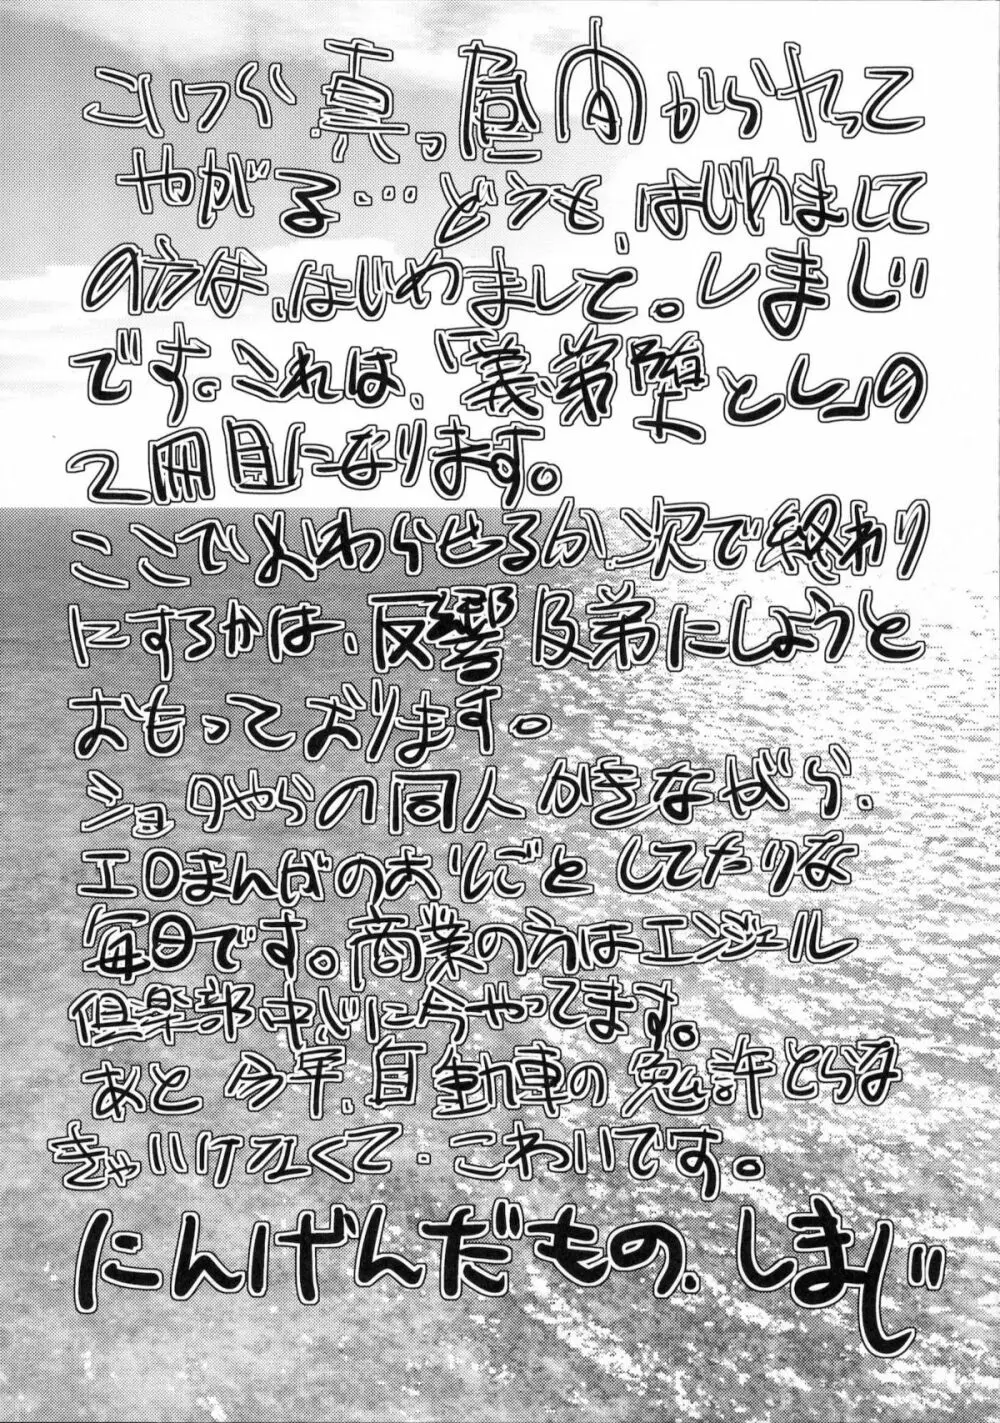 こいつら真っ昼間からヤって
やがる…どうも、はじめまして
の方は、はじめまして。しまじ
です。これは、「義弟堕とし」の
2冊目になります。
ここでおわらせるか次で終わり
にするかは、反響及第にしようと
おもっております。
ショタやらの同人かきながら、
エロまんがのおしごとしてたりな
毎日です。商業の方はエンジェル
倶楽部中心に今やってます。
あと今年、自動車の免許とらな
きゃいけなくて・こわいです。
にんげんだもの、しまじ